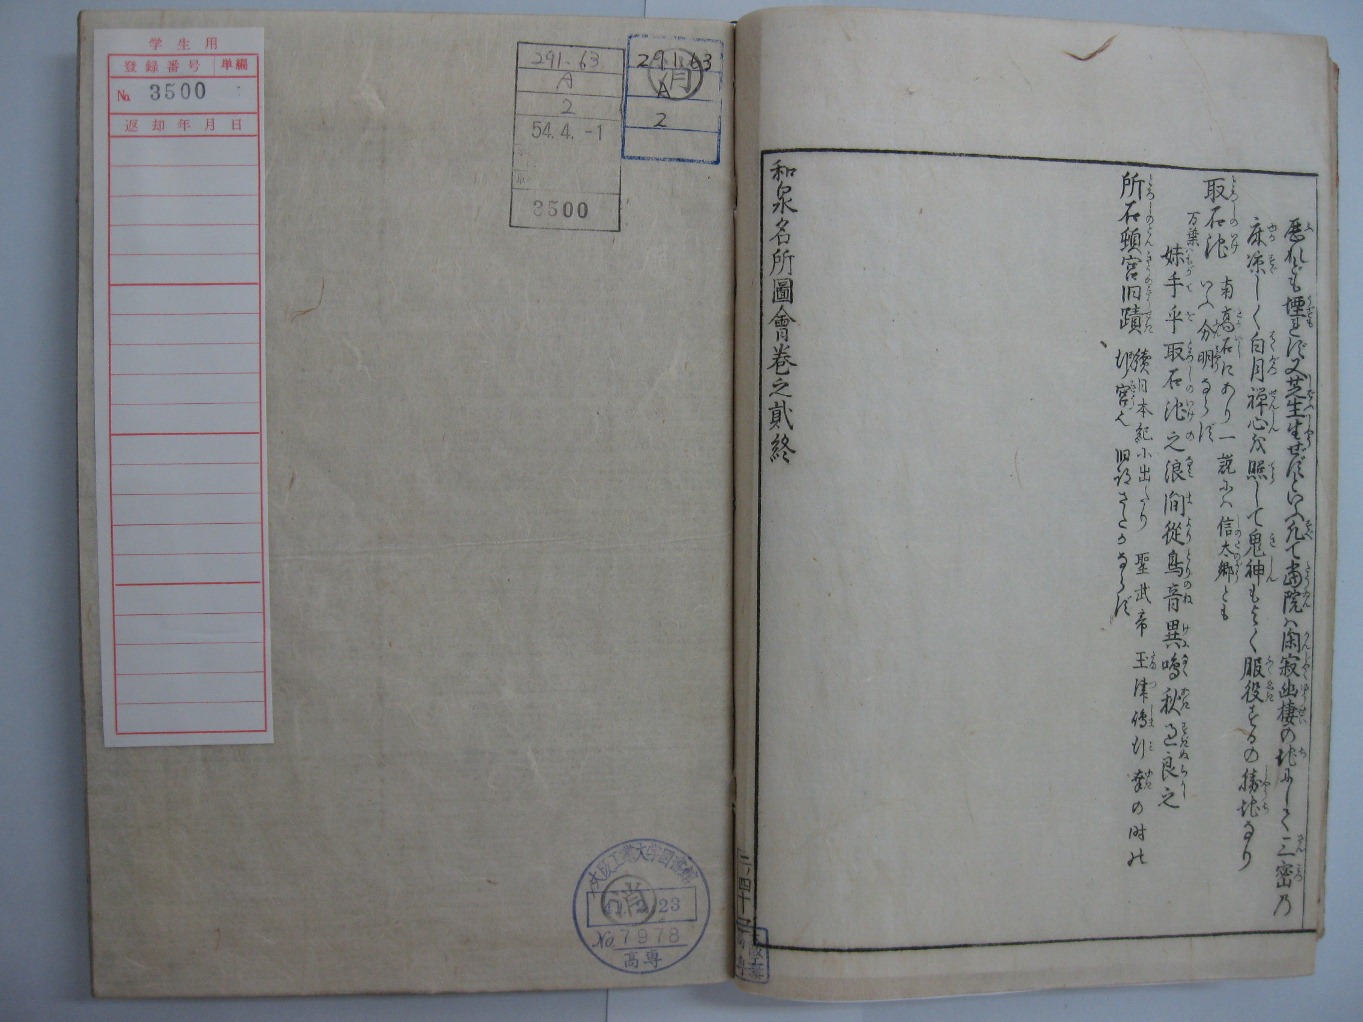 学生用
登録番号 単編
No. 3500
返却年月日
291.63
A
2
54.4.-1
3500
291.63
消
A
2
大阪工業大学図書館
消
2.23
No 7978
高専
歴れども煙きえず又芝生生ぜずといへり凡て当院ハ閑寂幽棲の地にして三密乃
床凉しく白月禅心を照して鬼神もよく服役するの勝地なり
取石池 南高石にあり一説にハ信太郷とも
いふ分明ならず
万葉
妹手乎取石池之浪間從鳥音異鳴秋過良之
所石頓宮旧蹟 續日本紀に出たり 聖武帝 玉津嶋行幸の時の
行宮也 旧跡さだかならず
和泉名所圖會巻之貳終
二ノ四十